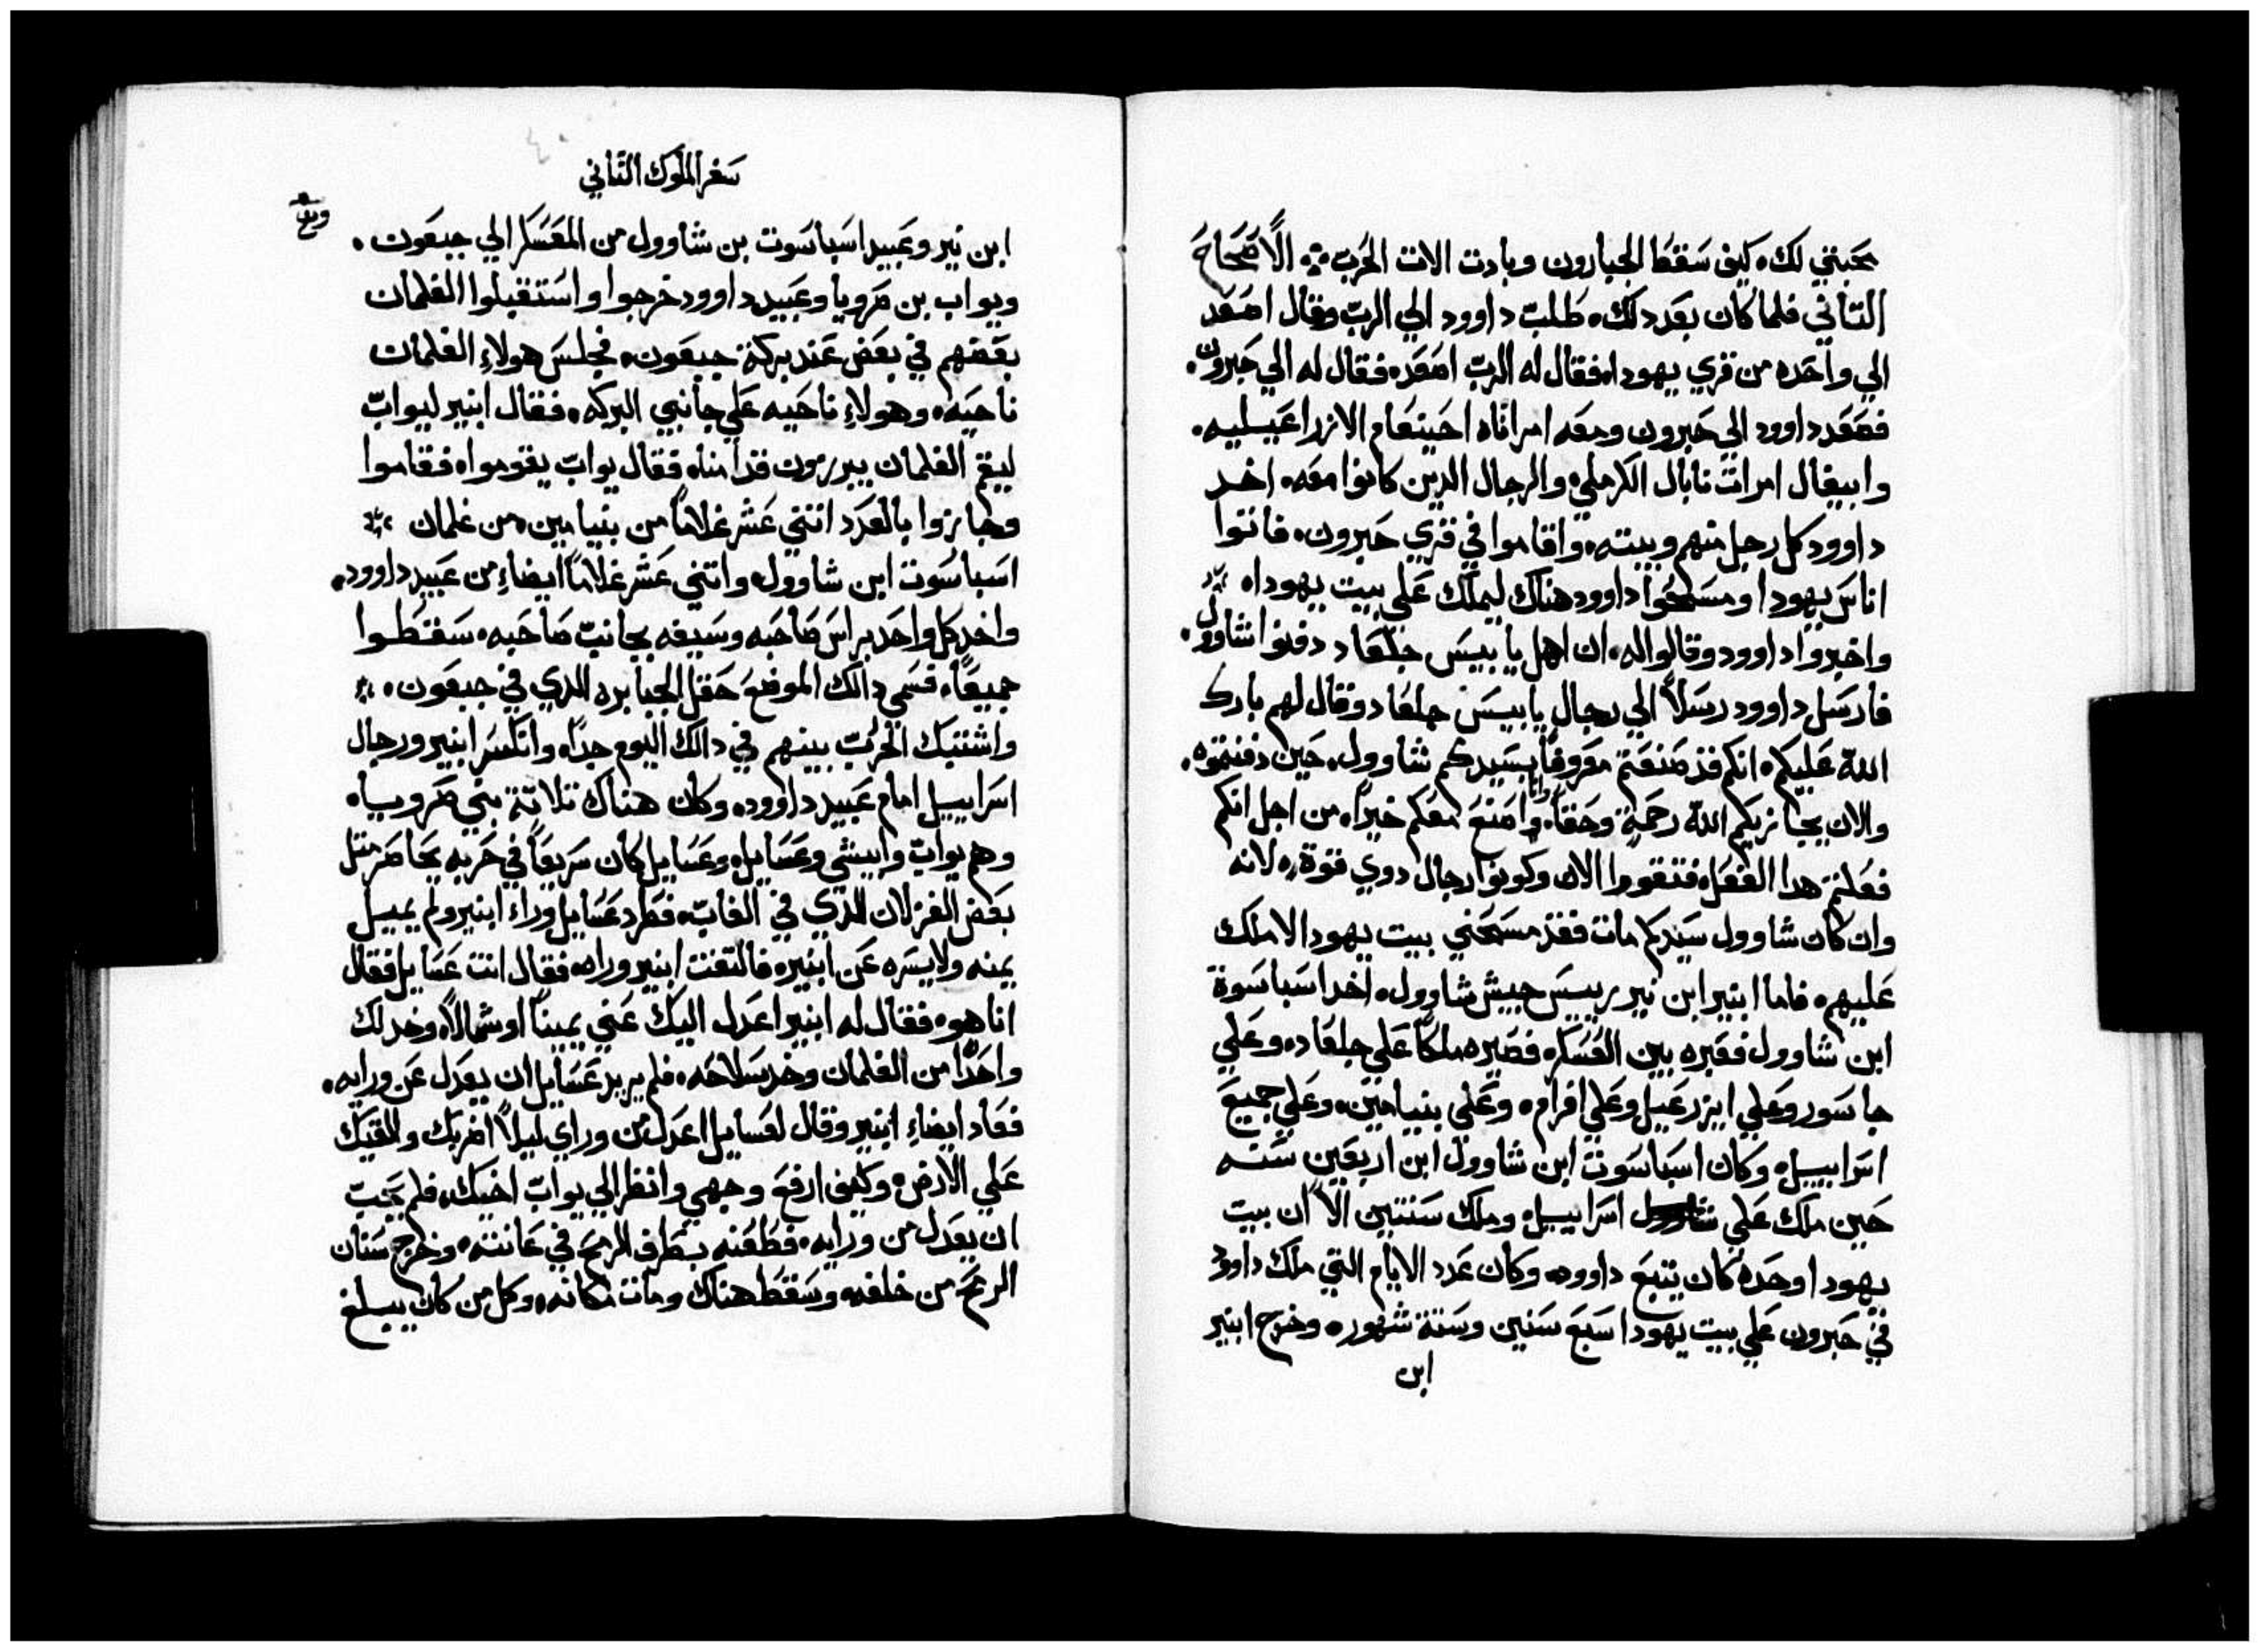 محبتي لك، كيف سقط الجبارون وبادت الات الحرب ܀ الاصحاح
التاني فلما كان بعد دلك، طلب داوود الي الرب وقال اصعد
الي واحده من قري يهودا، فقال له الرب اصعد، فقال له الي حبرون،
فصعد داوود الي حبرون ومعه امراتاه احينعام الازراعيليه،
وابيغال امرات نابال الكرملي، والرجال الدين كانوا معه، اخد
داوود كل رجل منهم وبيته، واقاموا في قري حبرون، فاتوا
اناس يهودا ومسحوا داوود هناك ليملك علي بيت يهودا،
واخبروا داوود وقالوا له، ان اهل يابيس جلعاد دفنوا شاوول،
فارسل داوود رسلاً الي رجال يابيس جلعاد وقال لهم بارك
الله عليكم، انكم قد صنعتم معروفاً بسيدكم شاوول، حين دفنتموه،
والان يجازيكم الله رحمة وحقاً، وانا اصنع معكم خيراً، من اجل انكم
فعلتم هدا الفعل، فتقووا الان وكونوا رجال دوي قوة، لانه
وان كان شاوول سيدكم مات فقد مسحني بيت يهودا لاملك
عليهم، فاما ابنير ابن نير رييس جيش شاوول، اخد اسباسوة
ابن شاوول فعبره بين العسكر، فصيره ملكاً علي جلعاد، وعلي
جاسور وعلي ايزرعيل وعلي افرام، وعلي بنيامين، وعلي جميع
اسراييل، وكان اسباسوت ابن شاوول ابن اربعين سنه
حين ملك علي اسراييل، وملك سنتين الا ان بيت
يهودا وحده كان يتبع داوود، وكان عدد الايام التي ملك داوود
في حبرون علي بيت يهودا سبع سنين وستة شهور، وخرج ابنير
ابن
سفر الملوك التاني
ابن نير وعبيد اسباسوت بن شاوول من المعسكر الي جبعون،
ويواب بن صرويا وعبيد داوود خرجوا واستقبلوا الغلمان
بعضهم في بعض عند بركة جبعون، فجلس هولاء الغلمان
ناحيه، وهولاء ناحيه علي جانبي البركه، فقال ابنير ليواب
ليقم الغلمان يبرزون قدامنا، فقال يواب يقوموا، فقاموا
وجازوا بالعدد اتني عشر غلاماً من بنيامين، من غلمان
اسباسوت ابن شاوول، واتني عشر غلاماً ايضاء من عبيد داوود،
واخد كل واحد براس صاحبه وسيفه بجانب صاحبه، سقطوا
جميعاً، فسمي دالك الموضع حقل الجبابره الدي في جبعون،
واشتبك الحرب بينهم في دالك اليوم جداً، وانكسر ابنير ورجال
اسراييل امام عبيد داوود، وكان هناك تلاتة بني صرويا،
وهم يواب وابيشي وعسايل، وعسايل كان سريعاً في جريه يحاصر متل
بعض الغزلان الدي في الغاب، فطرد عسايل وراء ابنير ولم يميل
يمنه ولا يسره عن ابنير، فالتفت ابنير وراه، فقال انت عسايل فقال
انا هو، فقال له ابنير اعدل اليك عني يميناً او شمالاً، وخد لك
واحداً من الغلمان وخد سلاحه، فلم يريد عسايل ان يعدل عن ورايه،
فعاد ايضاء ابنير وقال لعسايل اعدل من وراي ليلاً اضربك والقيك
علي الارض، وكيف ارفع وجهي وانظر الي يواب اخيك، فلم يحب
ان يعدل من ورايه، فطعنه بطرف الرمح في عانته، وخرج سنان
الرمح من خلفه، وسقط هناك ومات مكانه، وكل من كان يبلغ